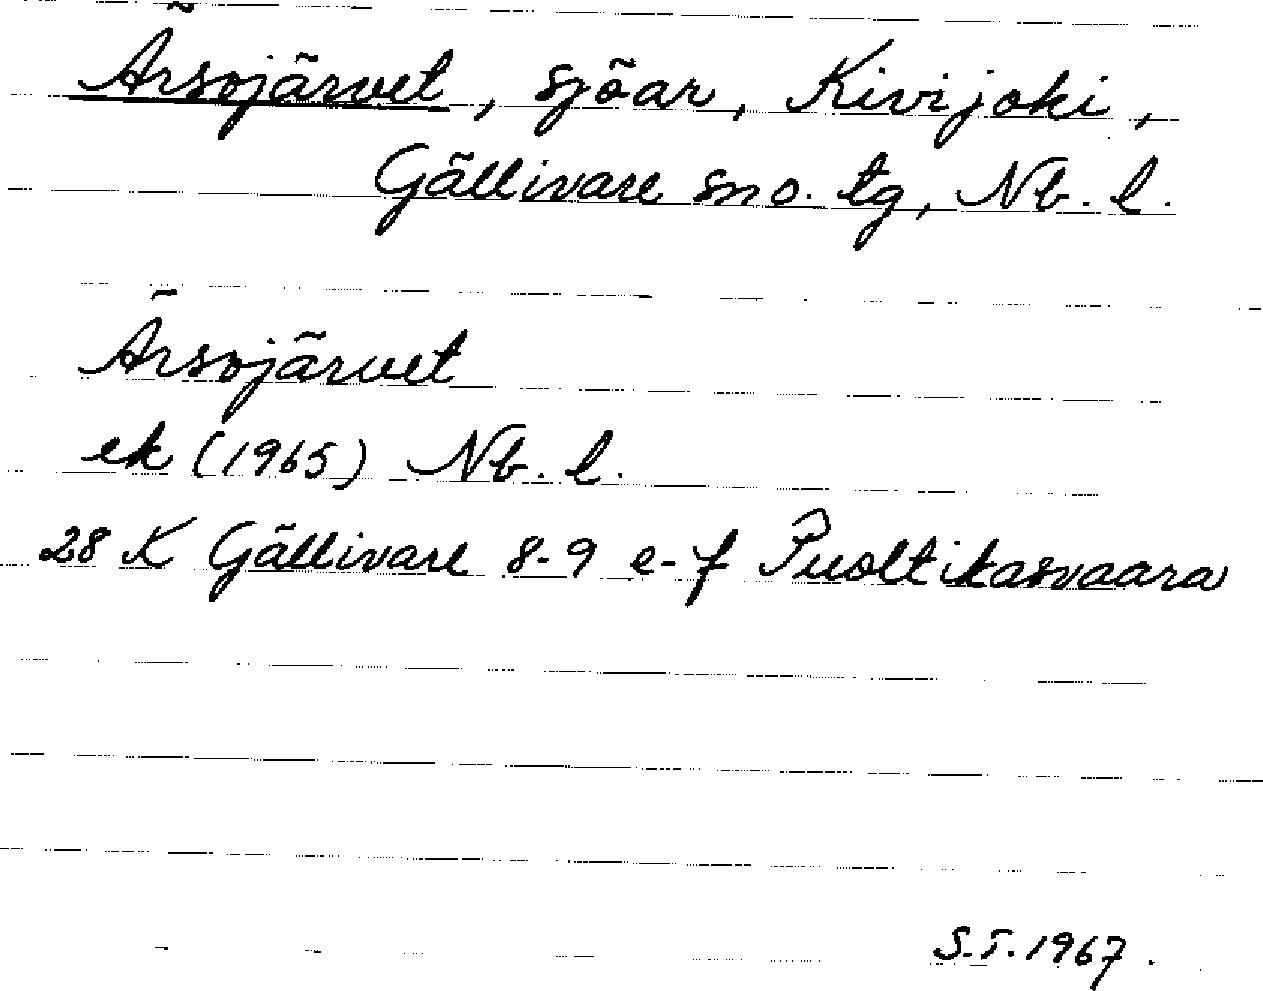 Ärsojärvet, sjöar, Kivijoki,
Gällivare sn o. tg, Nb. l.
Ärsojärvet
ek (1965) Nb. l.
28 K Gällivare 8-9 e-f Puoltikasvaara
S.T. 1967.